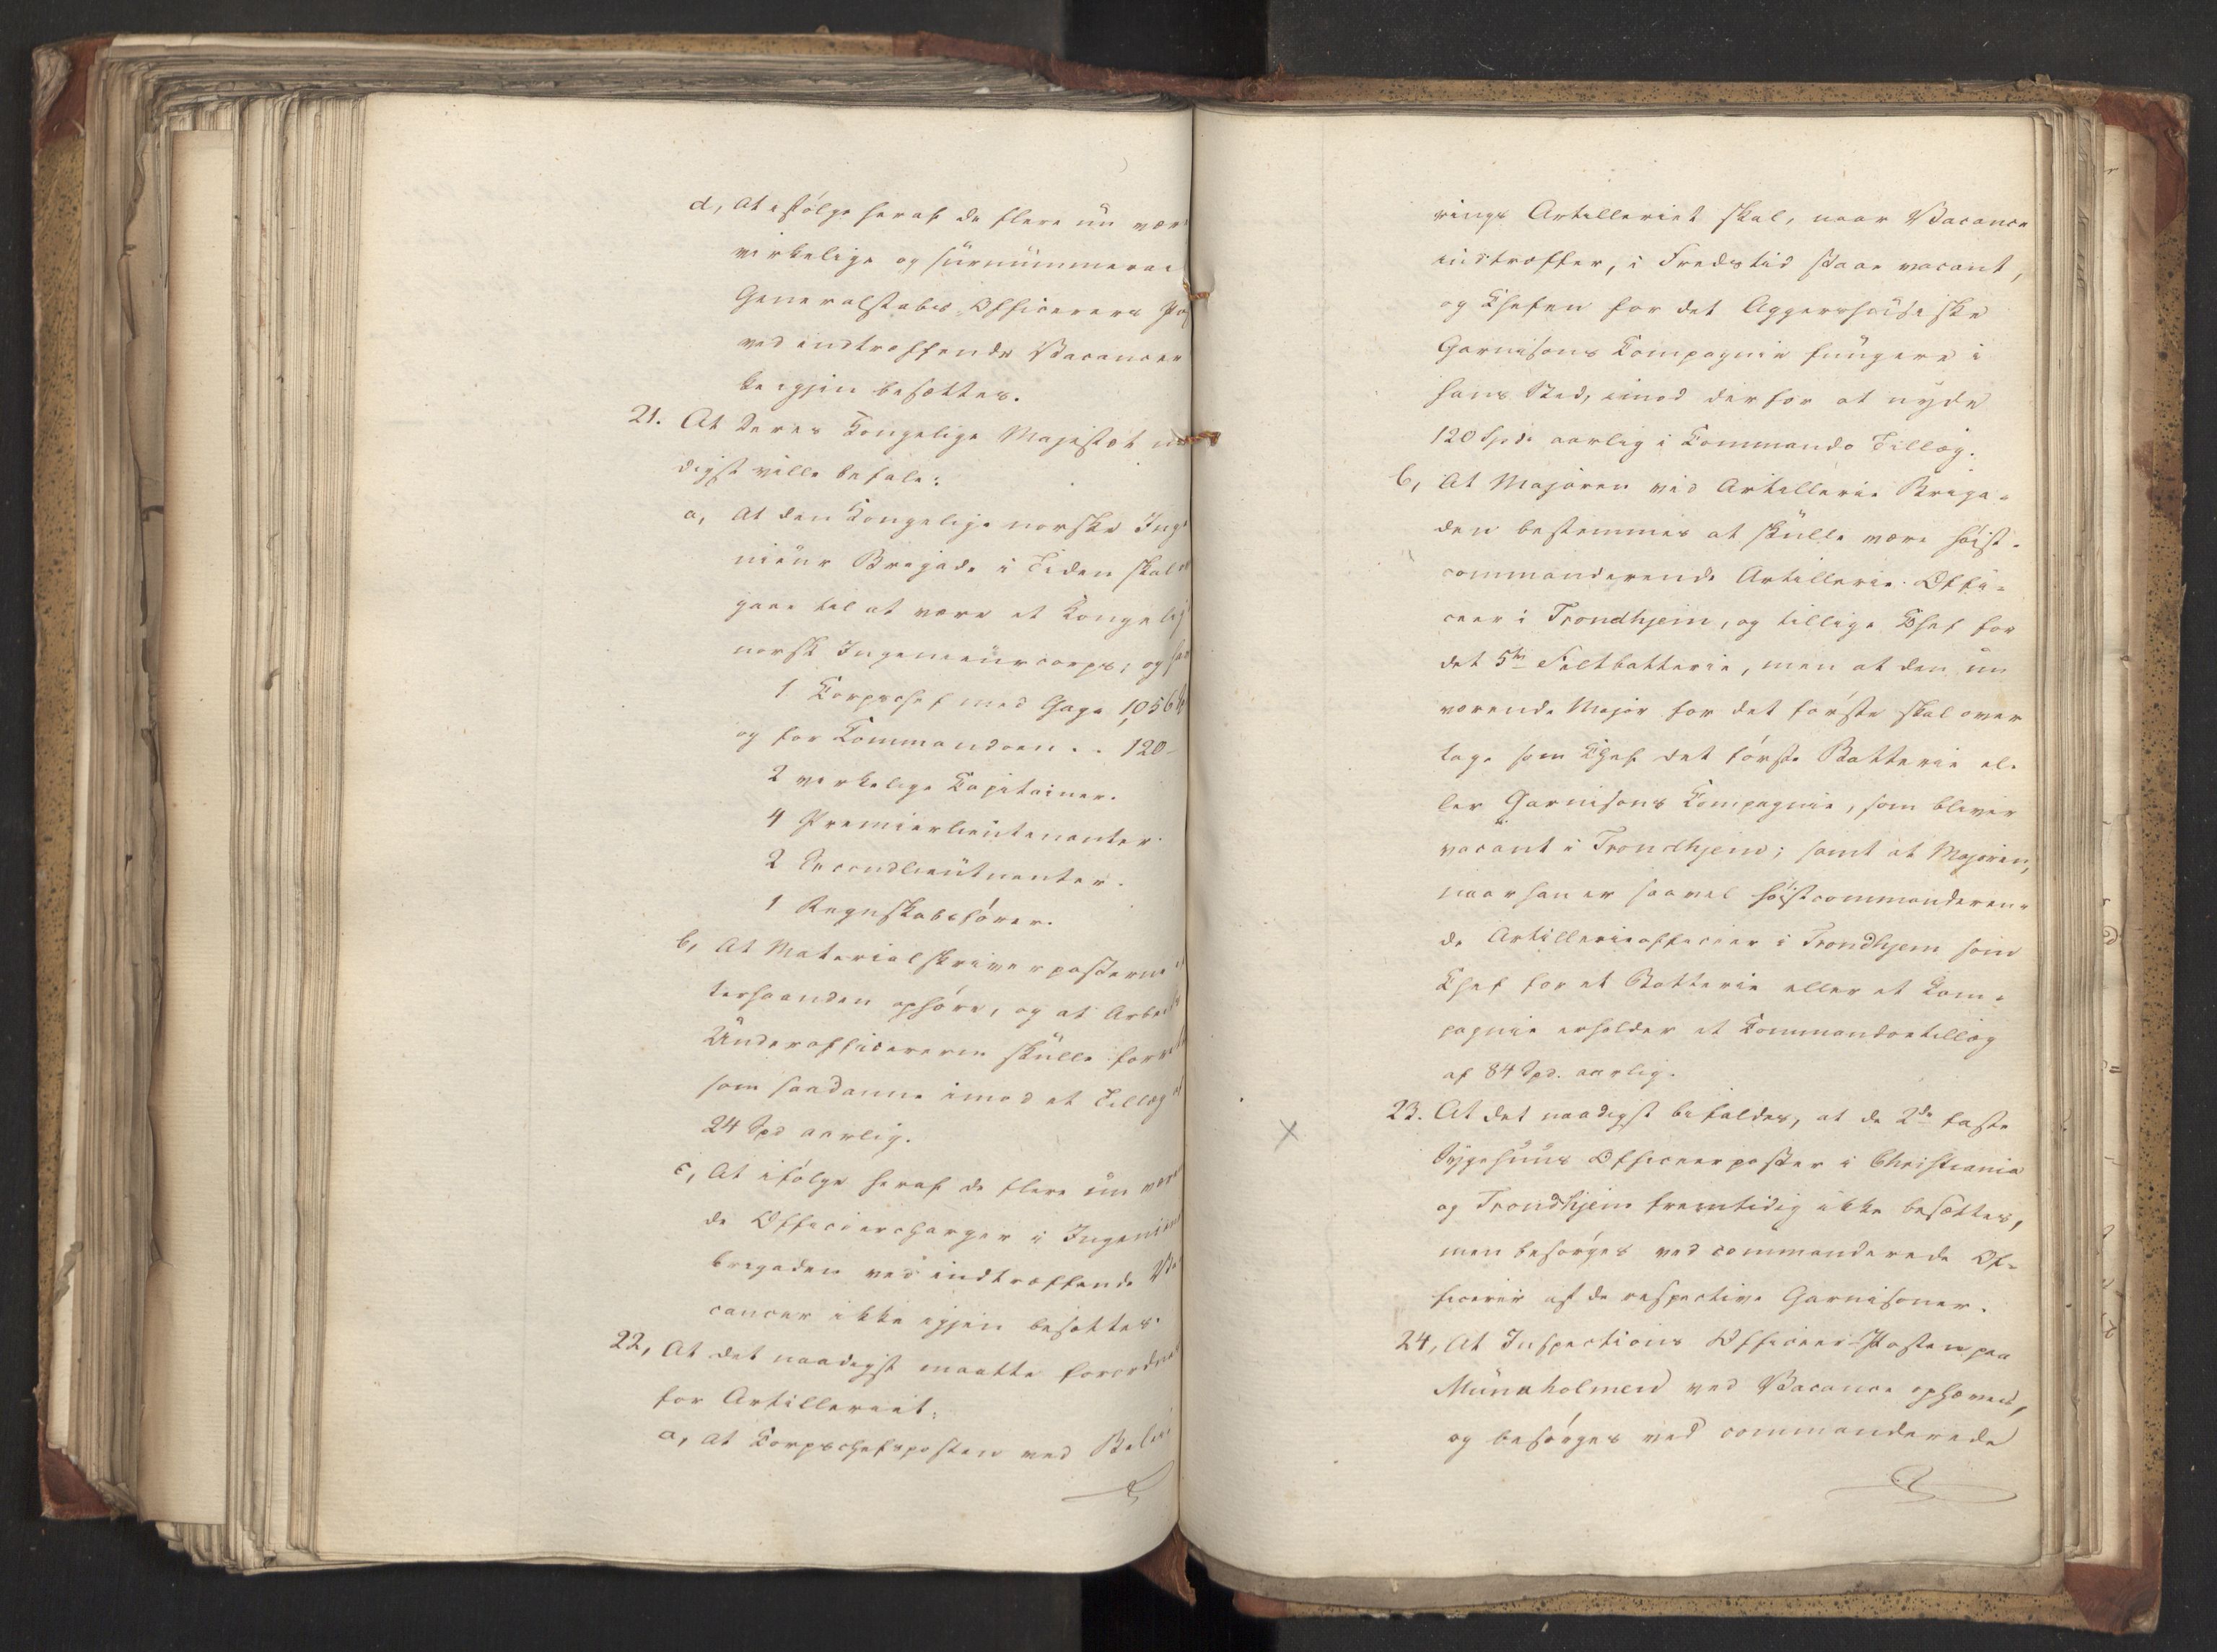 d, At ifølge heraf de flere nu være
virkelige og surnummerai
Generalstabs-Officerers Po
ved indtræffende Vacancer
ke igjen besættes.
21. At Deres Kongelige Majestæt na
digst ville befale:
a, At den Kongelige norske Inge
nieur Brigade i Tiden skal
gaae til at være et Kongelig
norsk Ingenieurcorps, og
1 Corpschef med Gage 1,056
og for Commandoen . . 120 -
2 virkelige Capitainer.
4 Premierlieutenanter.
2 Secondlieutnanter.
1 Regnskabsfører.
b, At Materialskriverposterne
terhaanden ophøre, og at Arbei
Underofficererne skulle forret
som saadanne imod et Tillæg
24 Spd aarlig.
c, At ifølge heraf de flere nu være
de Officiercharger i Ingenieur
brigaden ved indtræffende Va
cancer ikke igjen besættes.
22, At det naadigst maatte forordnes
for Artilleriet:
a, at Corpschefsposten ved Belei
rings Artilleriet skal, naar Vacance
indtræffer, i Fredstid staae vacant,
og Chefen for det Aggershuusiske
Garnisons Compagnie fungere i
hans Sted, imod derfor at nyde
120 Spd. aarlig i Commando Tillæg.
b, At Majoren ved Artillerie Briga-
den bestemmes at skulle være høist-
commanderende Artillerie Offi-
ceer i Trondhjem, og tillige Chef for
det 5te Feltbatterie, men at den nu
værende Major for det første skal over
tage som Chef det første Batterie el-
ler Garnisons Compagnie, som bliver
vacant i Trondhjem; samt at Majoren,
naar han er saavel høistcommanderen-
de Artillerieofficeer i Trondhjem som
Chef for et Batterie eller et Com-
pagnie erholder et Commandotillæg
af 84 Spd. aarlig.
23. At det naadigst befaldes, at de 2de faste
Sygehuus Officeerposter i Christiania
og Trondhjem fremtidig ikke besættes,
men besørges ved commanderede Of-
ficerer af de respective Garnisoner.
24, At Inspections Officeer-Posten paa
Munkholmen ved Vacance ophæves,
og besørges ved commanderede